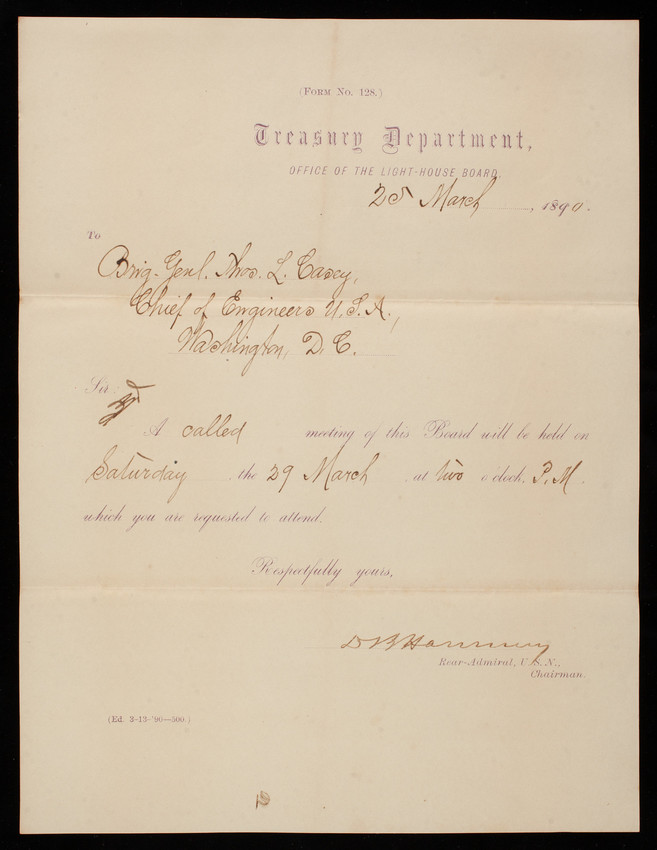 (Form No. 128.)
Treasury Department,
OFFICE OF THE LIGHT-HOUSE BOARD,
25 March, 1890.
To
Brig. Genl. Thos. L. Casey,
Chief of Engineers U.S.A.,
Washington, D.C.
Sir:
A called meeting of this Board will be held on
Saturday, the 29 March, at two o'clock, P.M.
which you are requested to attend.
Respectfully yours,
D B Harmony
Rear-Admiral, U.S.N.,
Chairman.
(Ed. 3-13-'90—500.)